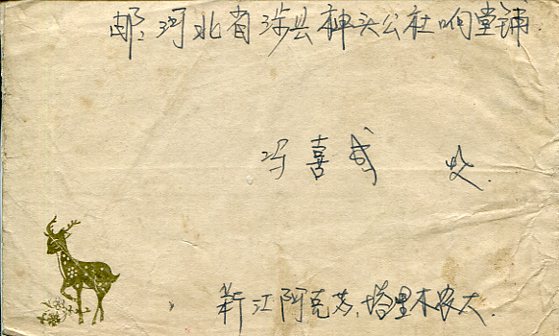 邮:河北省涉县神头公社响堂铺
冯喜成 收.
新江阿克苏.塔里木农大.